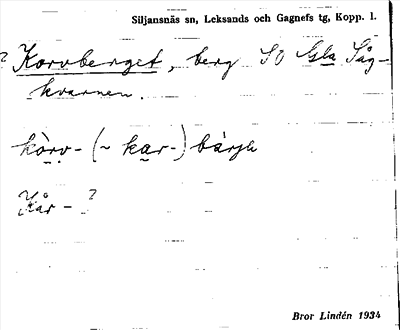 Siljansnäs sn, Leksands och Gagnefs tg, Kopp. l.
? Korvberget, berg SO Gla Såg-
kvarnen.
kòrv- (~ kar-) bàrjä
Kår- ?
Bror Lindén 1934